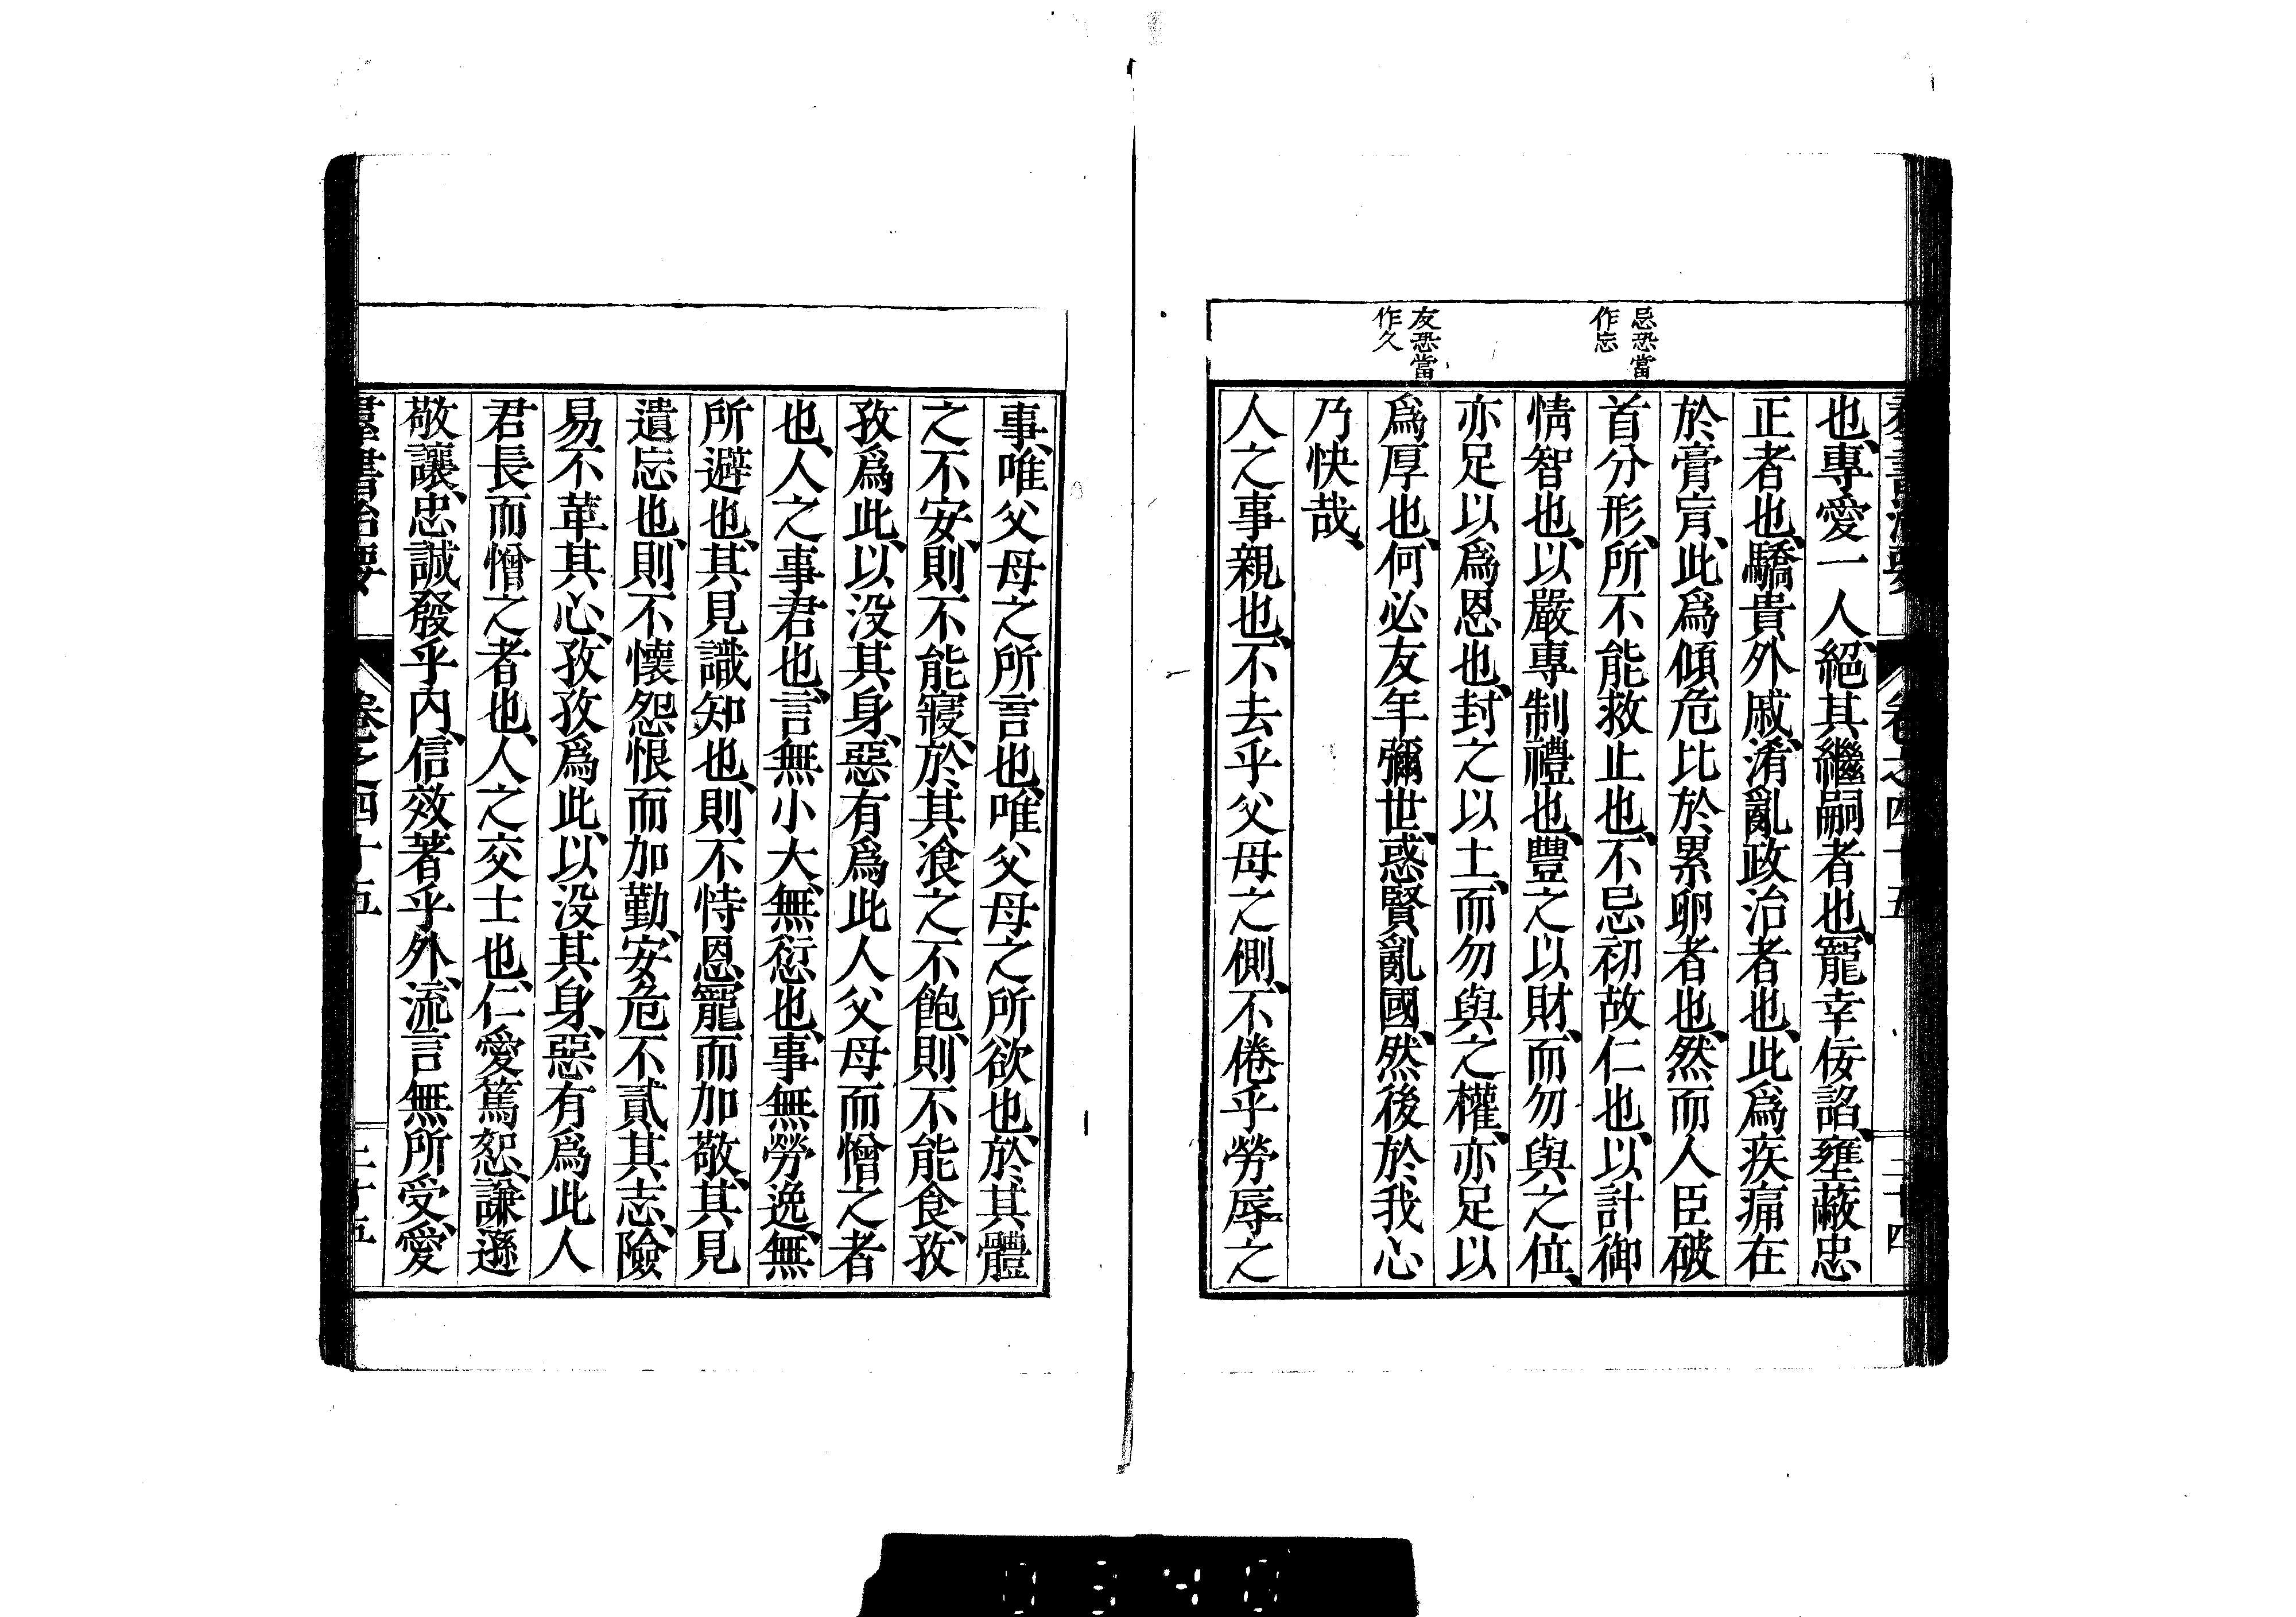 羣書治要 卷之四十五 二十四
忌恐當
作忘
友恐當
作久
也、專愛一人、絕其繼嗣者也、寵幸佞諂、壅蔽忠
正者也、驕貴外戚、淆亂政治者也、此爲疾痛在
於膏肓、此爲傾危比於累卵者也、然而人臣破
首分形、所不能救止也、不忌初故仁也、以計御
情智也、以嚴專制禮也、豐之以財、而勿與之位、
亦足以爲恩也、封之以土、而勿與之權、亦足以
爲厚也、何必友年彌世、惑賢亂國、然後於我心
乃快哉、
人之事親也、不去乎父母之側、不倦乎勞辱之
事、唯父母之所言也、唯父母之所欲也、於其體
之不安、則不能寢、於其飡之不飽、則不能食、孜
孜爲此、以沒其身、惡有爲此人父母而憎之者
也、人之事君也、言無小大、無愆也、事無勞逸、無
所避也、其見識知也、則不恃恩寵而加敬、其見
遺忘也、則不懷怨恨而加勤、安危不貳其志、險
易不革其心、孜孜爲此、以沒其身、惡有爲此人
君長而憎之者也、人之交士也、仁愛篤恕、謙遜
敬讓、忠誠發乎內、信效著乎外、流言無所受、愛
羣書治要 卷之四十五 二十五
0340